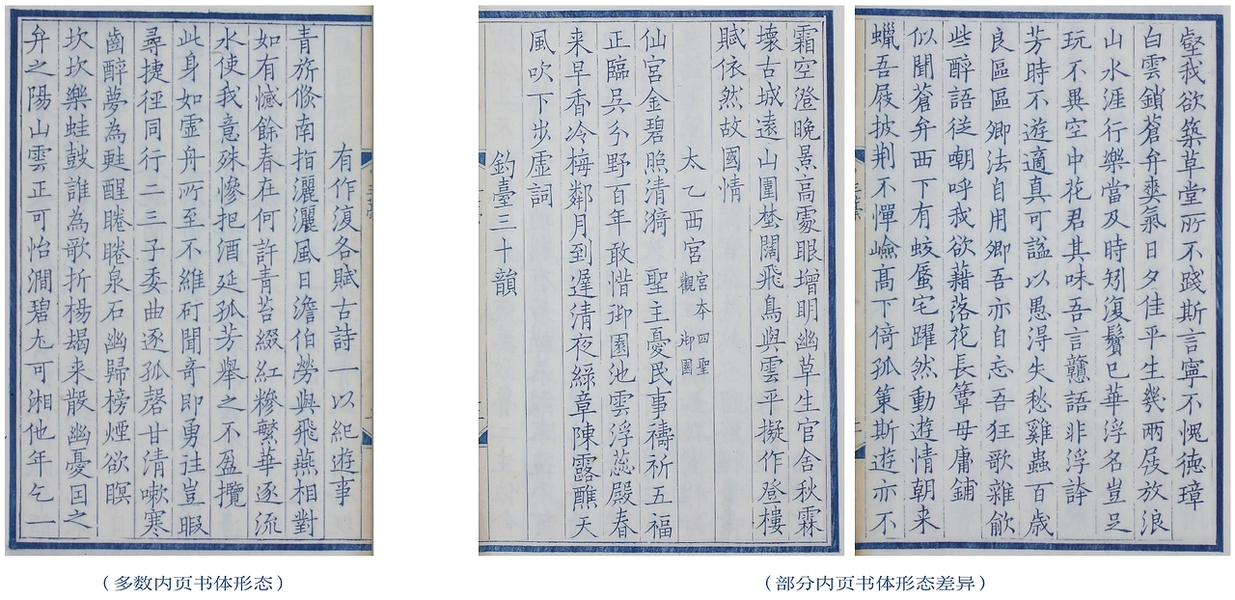 有作復各賦古詩一以紀遊事
青旂倐南指灑灑風日澹伯勞與飛燕相對
如有憾餘春在何許青苔綴紅糝繁華逐流
水使我意殊慘把酒延孤芳舉之不盈攬
此身如虛舟所至不維矴聞奇即勇往豈暇
尋捷徑同行二三子委曲逐孤磬甘清嗽寒
齒醉夢為䵷醒睠睠泉石幽歸榜煙欲暝
坎坎樂蛙鼓誰為歌折楊朅来散幽憂囯之
弁之陽山雲正可怡澗碧尤可湘他年乞一
（多数内页书体形态）
壑我欲築草堂所不踐斯言寧不愧德璋
白雲鎖蒼弁爽氣日夕佳平生幾兩屐放浪
山水涯行樂當及時矧復鬢已華浮名豈足
玩不異空中花君其味吾言戇語非浮誇
芳時不遊適真可謚以愚得失愁雞蟲百歲
良區區卿法自用卿吾亦自忘吾狂歌雜歈
些醉語從嘲呼我欲藉落花長簟毋庸鋪
似聞蒼弁西下有蛟蜃宅躍然動遊情朝来
蠟吾屐披荆不憚嶮高下倚孤策斯遊亦不
霜空澄晚景高處眼增明幽草生官舍秋霖
壞古城遠山圍埜闊飛鳥與雲平擬作登樓
賦依然故國情
太乙西宮 宮本四聖觀御園
仙宮金碧照清漪 聖主憂民事禱祈五福
正臨吳分野百年敢惜御園池雲浮蕊殿春
来早香冷梅鄰月到遲清夜綠章陳露醮天
風吹下步虛詞
釣臺三十韻
（部分内页书体形态差异）